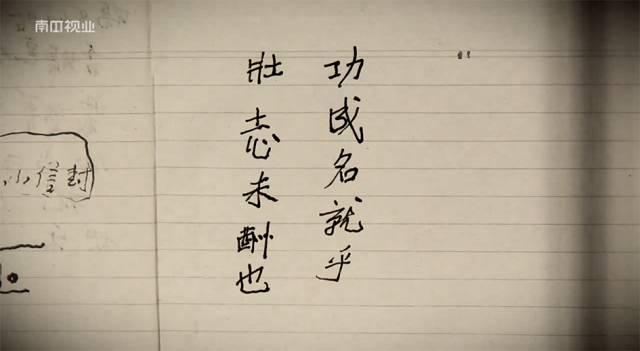 南方视业
功成名就乎
壮志未酬也
小信封